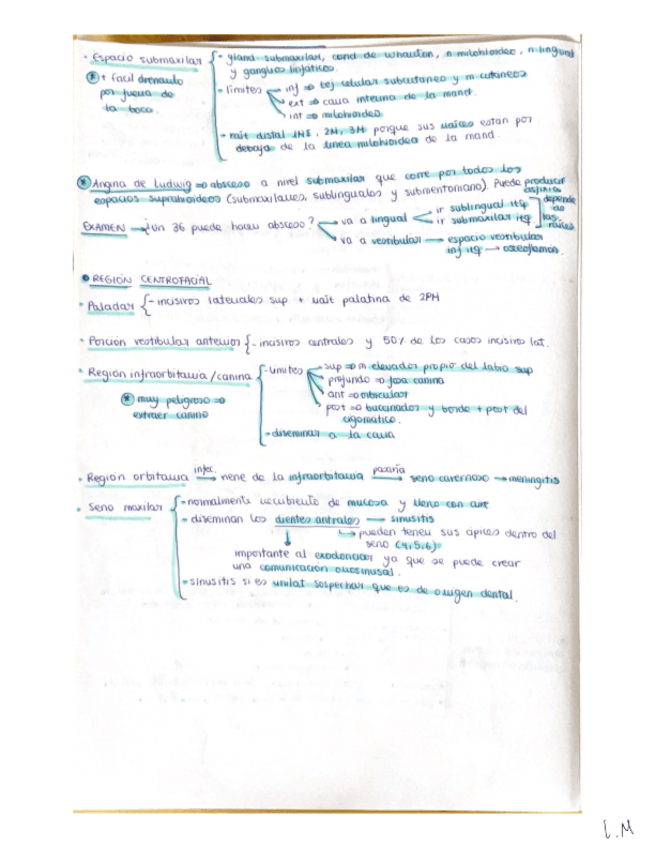 · Espacio submaxilar { - gland submaxilar, cond de wharton, n milohioideo, n lingual
y ganglios linfáticos.
* + fácil drenarlo por fuera de la boca.
- límites → inf ⇒ tej celular subcutaneo y m cutaneos
ext ⇒ cara interna de la mand.
int ⇒ milohioideo
- raíz distal 1M, 2M, 3M porque sus raíces estan por
debajo de la linea milohioidea de la mand.
* Angina de Ludwig ⇒ absceso a nivel submaxilar que corre por todos los
espacios suprahioideos (submaxilares, sublinguales y submentoniano). Puede producir asfixia
EXAMEN → ¿un 36 puede hacer absceso? → va a lingual < ir sublingual izq
ir submaxilar izq ] depende de las raíces
→ va a vestibular → espacio vestibular
inf izq → osteoflemón.
• REGIÓN CENTROFACIAL
· Paladar { - incisivos laterales sup + raíz palatina de 2PM
· Porción vestibular anterior { - incisivos centrales y 50% de los casos incisivo lat.
· Región infraorbitaria/canina { - límites → sup ⇒ m elevador propio del labio sup
profundo ⇒ fosa canina
* muy peligroso ⇒ extraer canino
ant ⇒ orbicular
post ⇒ buccinador y borde + post del
cigomático.
- diseminar a la cara
· Región orbitaria infec. → viene de la infraorbitaria pasaría → seno cavernoso → meningitis
· Seno maxilar { - normalmente recubierto de mucosa y lleno con aire
- diseminan los dientes antrales → sinusitis
↳ pueden tener sus ápices dentro del
seno (4,5,6).
importante al exodonciar ya que se puede crear
una comunicación orosinusal.
- sinusitis si es unilat sospechar que es de origen dental.
L.M